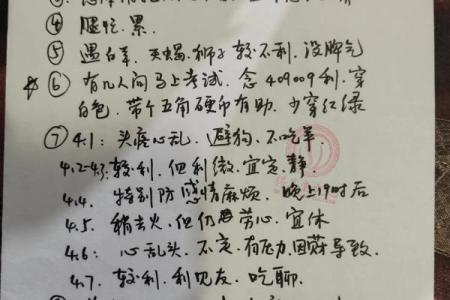 ④ 腿忙.累.
⑤ 遇白羊.天蝎.狮子较不利.没脾气
⑥ 有几人问马上考试.念409009利.穿
白色.带个五角硬币有助.少穿红绿
⑦ 4.1: 头疼心乱.避狗.不吃羊.
4.2-4.3: 较利.但利微.宜定.静.
4.4. 特别防感情麻烦.晚上19时后
4.5. 稍去火.但仍劳心.宜休
4.6: 心乱头.不定.有压力.因财导致.
4.7. 较利.利见友.吃聊.